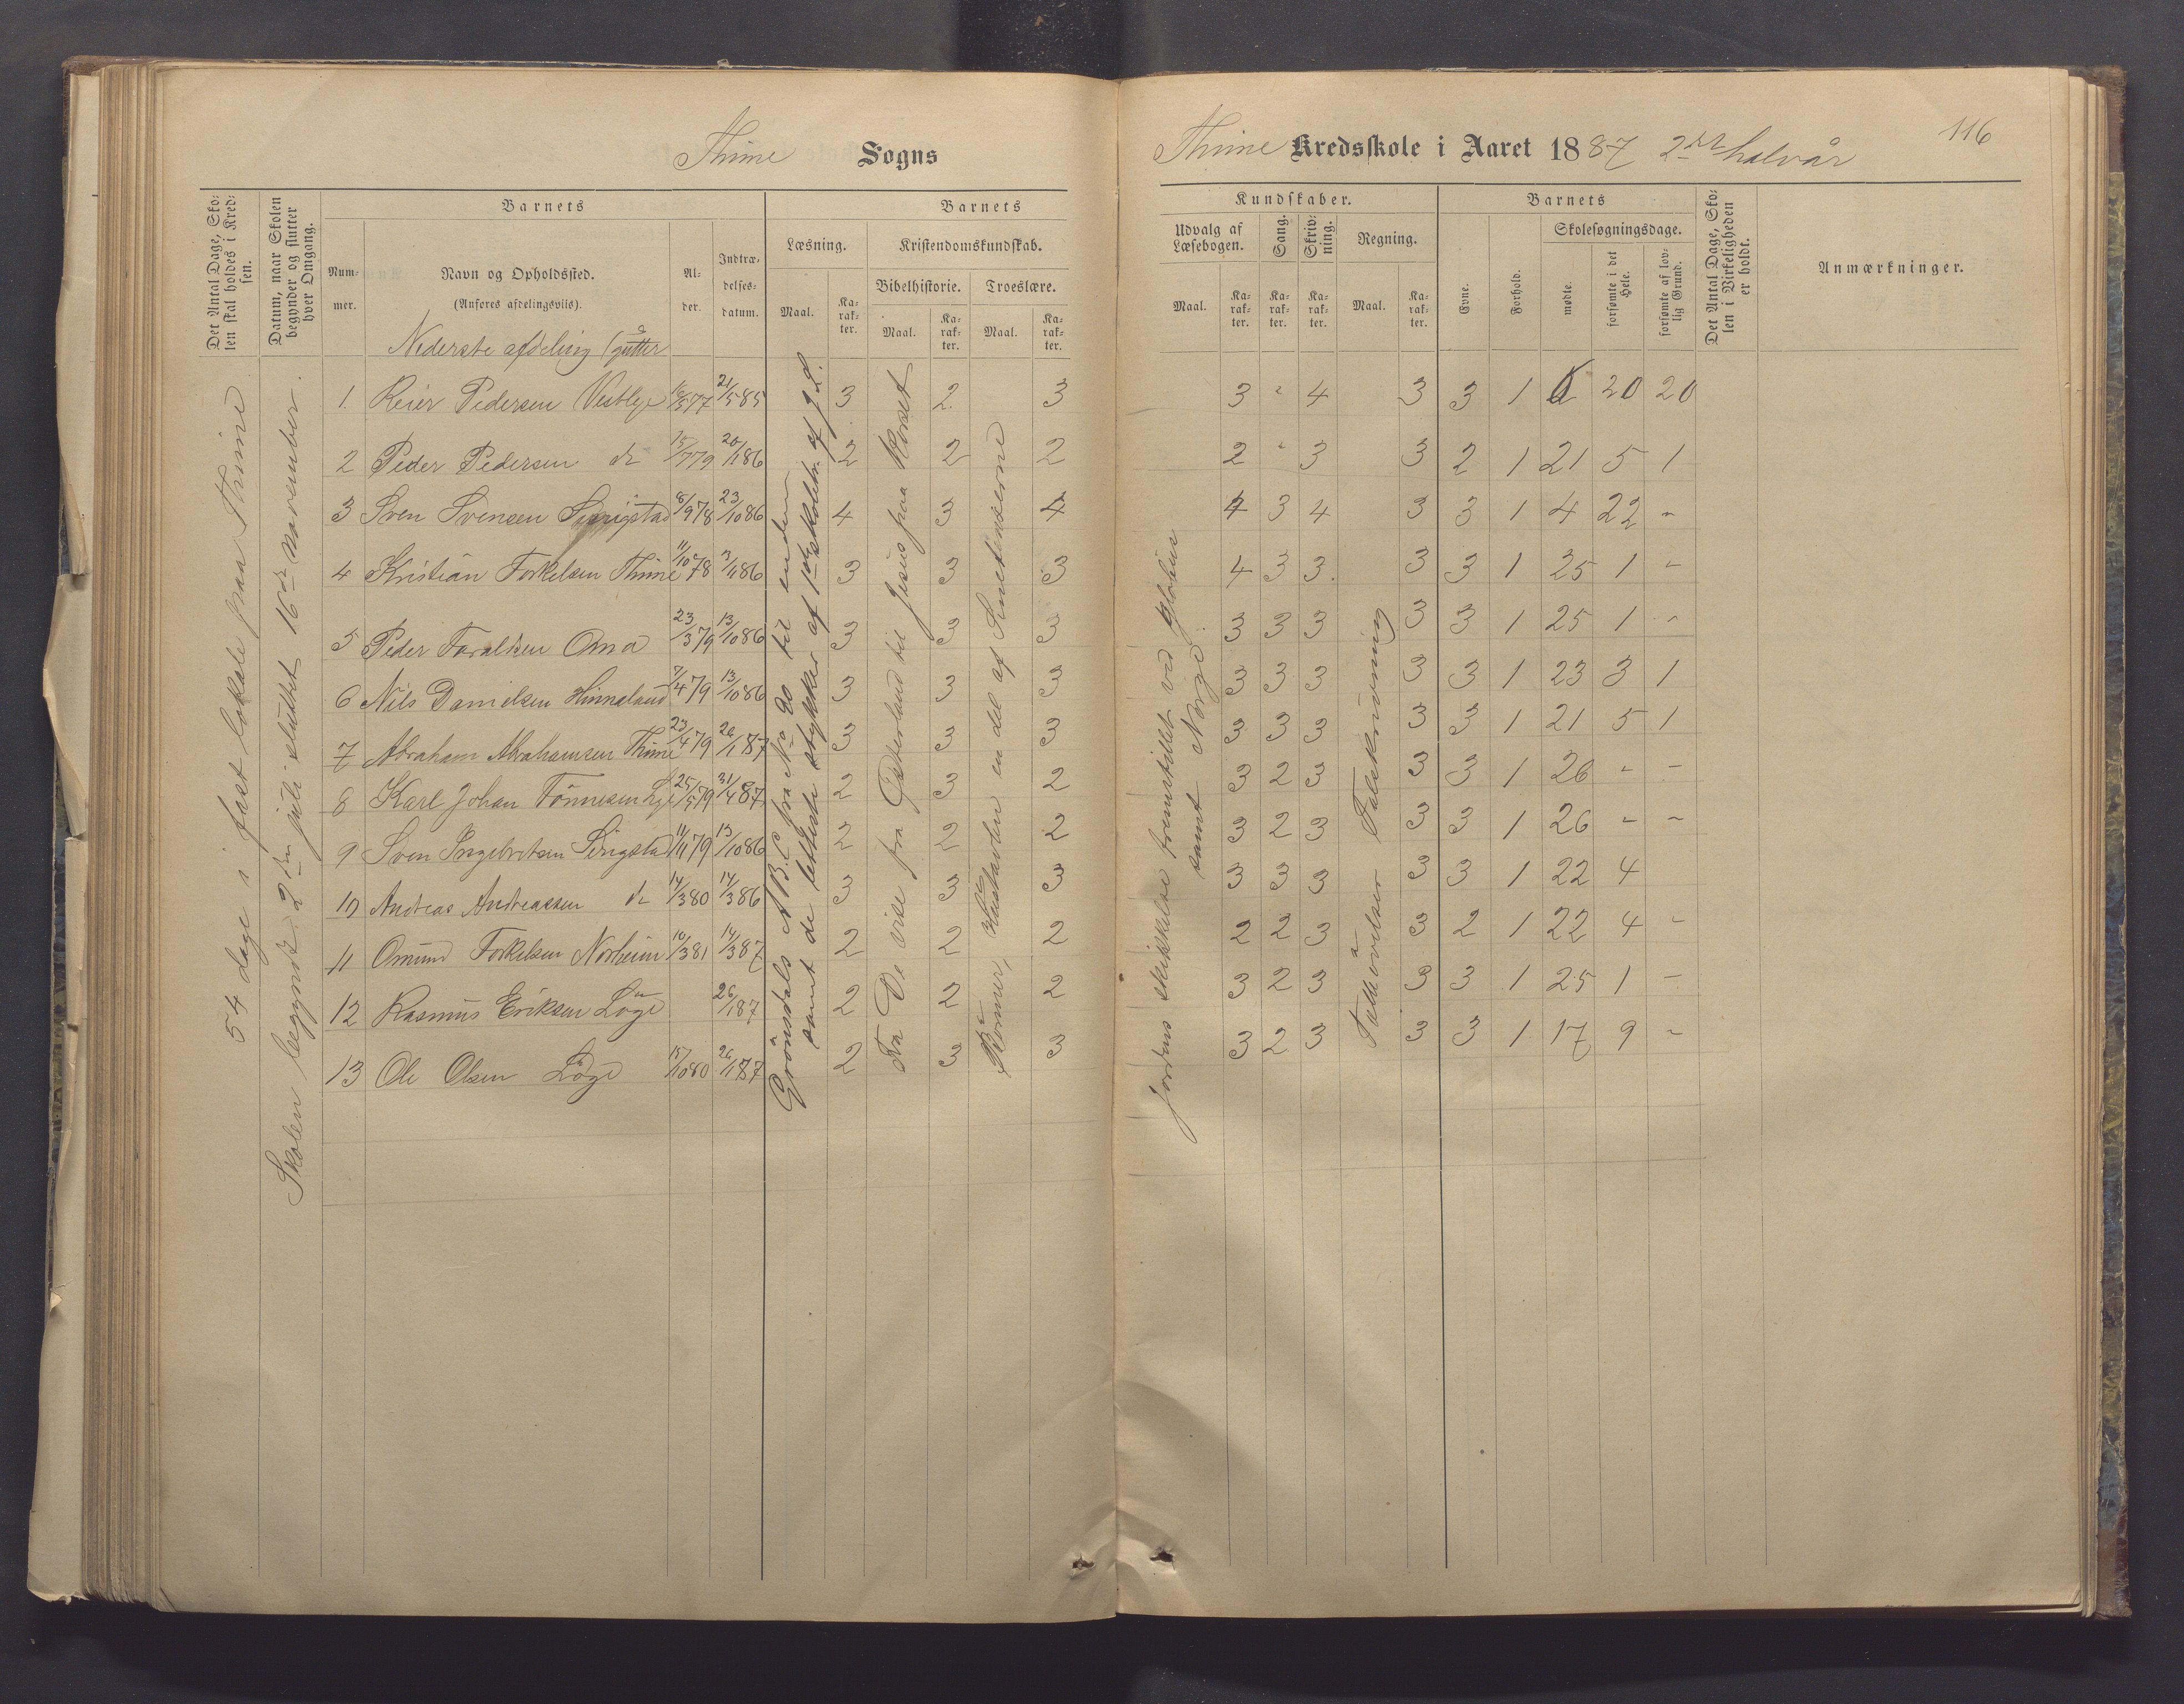 Thime Sogns
Det Antal Dage, Skolen skal holdes i Kredsen.
Datum, naar Skolen begynder og slutter hver Omgang.
Barnets
Nummer.
Navn og Opholdssted.
(Anføres afdelingsvils).
Alder.
Indtrædelsesdatum.
Barnets
Læsning.
Maal.
Karakter.
Kristendomskundskab.
Bibelhistorie.
Maal.
Karakter.
Troeslære.
Maal.
Karakter.
Nederste afdeling (gutter
54 dage i fast lokale paa Thime
Skolen begyndt 2den juli sluttet 16de november.
1. Reier Pedersen Vestlye 16/5 77 21/5 85 3 2. 3
2 Peder Pedersen do 15/7 79 20/1 86 2 2 2
3 Sven Svensen Sirigstad 8/9 78 23/10 86 4 3 4
4 Kristian Torkelsen Thime 11/10 78 3/1 86 3 3 3
5 Peder Taraldsen Oma 23/3 79 13/10 86 3 3 3
6 Nils Danielsen Hinnaland 7/4 79 13/10 86 3 3 3
7 Abraham Abrahamsen Thime 23/4 79 26/1 87 3 3 3
8 Karl Johan Tönnesen Lye 25/5 79 31/4 87 2 3 2
9 Sven Ingebretsen Sirigstad 11/11 79 13/10 86 2 2 2
10 Andreas Andreassen do 14/3 80 14/3 86 3 3 3
11 Omund Torkelsen Norheim 10/3 81 14/3 87 2 2 2
12 Rasmus Eriksen Löge 26/1 87 2 2 2
13 Ole Olsen Löge 15/10 80 26/1 87 2 3 3
Grönsdals A B C fra No 20 til enden
samt de letteste stykker af 1ste skoletrin af J. L.
Fra De vise fra Østerland til Jesus paa Korset
Börner, Hustavlen en del af Sinclensserne
Thime Kredsskole i Aaret 1887 2det halvår
116
Kundskaber.
Udvalg af Læsebogen.
Maal.
Karakter.
Sang.
Karakter.
Skrivning.
Karakter.
Regning.
Maal.
Karakter.
Barnets
Evne.
Forhold.
Skolesøgningsdage.
mødte.
forsømte i det Hele.
forsømte af lovlig Grund.
Det Antal Dage, Skolen i Virkeligheden er holdt.
Anmærkninger.
3 " 4 3 3 1 6 20 20
2 " 3 3 2 1 21 5 1
4 3 4 3 3 1 4 22 -
4 3 3. 3 3 1 25 1 -
3 3 3 3 3 1 25 1 -
3 3 3 3 3 1 23 3 1
3 3 3 3 3 1 21 5 1
3 2 3 3 3 1 26 - -
3 2 3 3 3 1 26 - -
3 3 3 3 3 1 22 4
2 2 3 3 2 1 22 4 -
3 2 3 3 3 1 25 1 -
3 2 3 3 3 1 17 9 -
Jordens skikkelse fremstillet ved globus
samt Norge.
Talløvelser Talskrivning